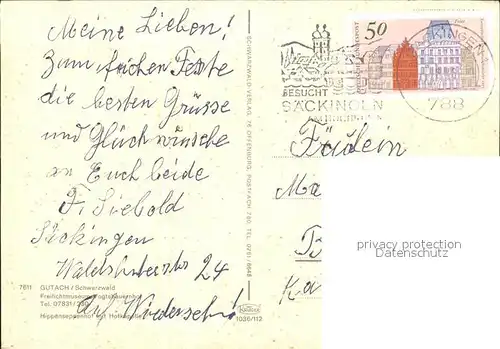 Meine Lieben!
Zum frohen Feste
die besten Grüsse
und Glückwünsche
an Euch beide
F. Siebold
Säckingen
Waldshuterstr 24
7611 GUTACH / Schwarzwald
Freilichtmuseum Vogtsbauernhof
Tel. 07831/230
Hippenseppenhof mit Hofkapelle
Auf Wiedersehn!
SCHWARZWALD-VERLAG, 76 OFFENBURG, POSTFACH 780, TEL. 0781/6948
1036/112
50
BESUCHT
SÄCKINGEN
AM HOCHRHEIN
SÄCKINGEN 1
788
Fräulein
Ma
Ka
privacy protection
Datenschutz